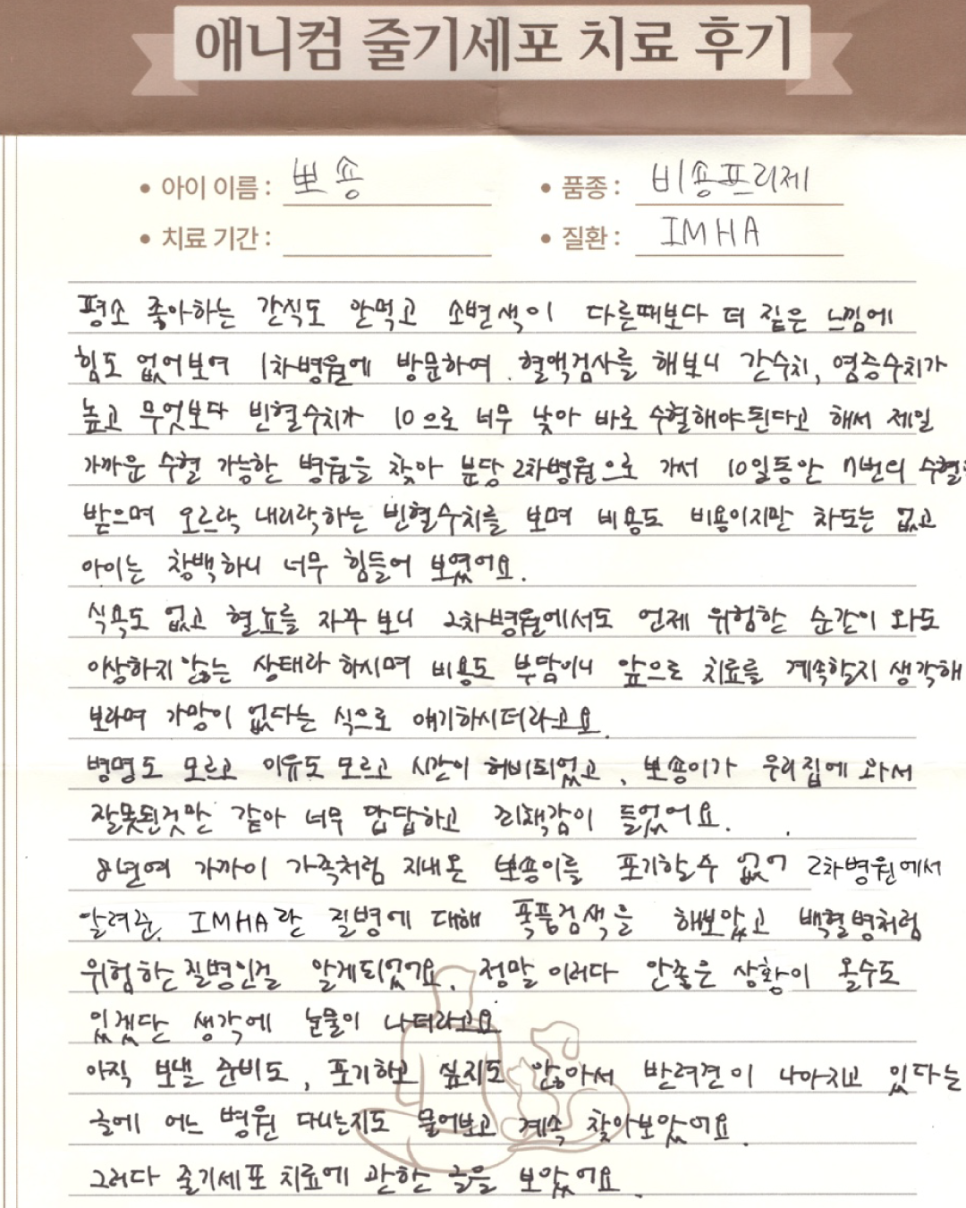 애니컴 줄기세포 치료 후기
• 아이 이름 : 뽀송
• 품종 : 비숑프리제
• 치료 기간 :
• 질환 : IMHA
평소 좋아하는 간식도 안먹고 소변색이 다른때보다 더 짙은 느낌에
힘도 없어보여 1차병원에 방문하여. 혈액검사를 해보니 간수치, 염증수치가
높고 무엇보다 빈혈수치가 10으로 너무 낮아 바로 수혈해야된다고 해서 제일
가까운 수혈 가능한 병원을 찾아 분당 2차병원으로 가서 10일동안 7번의 수혈
받으며 오르락 내리락하는 빈혈수치를 보며 비용도 비용이지만 차도는 없고
아이는 창백하니 너무 힘들어 보였어요.
식욕도 없고 혈뇨를 자꾸 보니 2차병원에서도 언제 위험한 순간이 와도
이상하지 않는 상태라 하시며 비용도 부담이니 앞으로 치료를 계속할지 생각해
보라며 가망이 없다는 식으로 얘기하시더라고요.
병명도 모르고 이유도 모르고 시간이 허비되었고, 뽀송이가 우리집에 와서
잘못된것만 같아 너무 답답하고 죄책감이 들었어요.
8년여 가까이 가족처럼 지내온 뽀송이를 포기할수 없어 2차병원에서
알려준 IMHA란 질병에 대해 폭풍검색을 해보았고 백혈병처럼
위험한 질병인걸 알게되었어요. 정말 이러다 안좋은 상황이 올수도
있겠단 생각에 눈물이 나더라고요
아직 보낼 준비도, 포기하고 싶지도 않아서 반려견이 나아지고 있다는
글에 어느 병원 다니는지도 물어보고 계속 찾아보았어요.
그러다 줄기세포 치료에 관한 글을 보았어요.